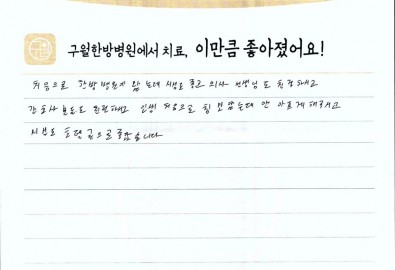 구월한방병원에서 치료, 이만큼 좋아졌어요!
처음으로 한방병원에 왔는데 의사 선생님도 친절하고
간호사 분들도 친절하고 인생 처음으로 침 맞았는데 안 아프게 해주시고
시설도 좋습니다